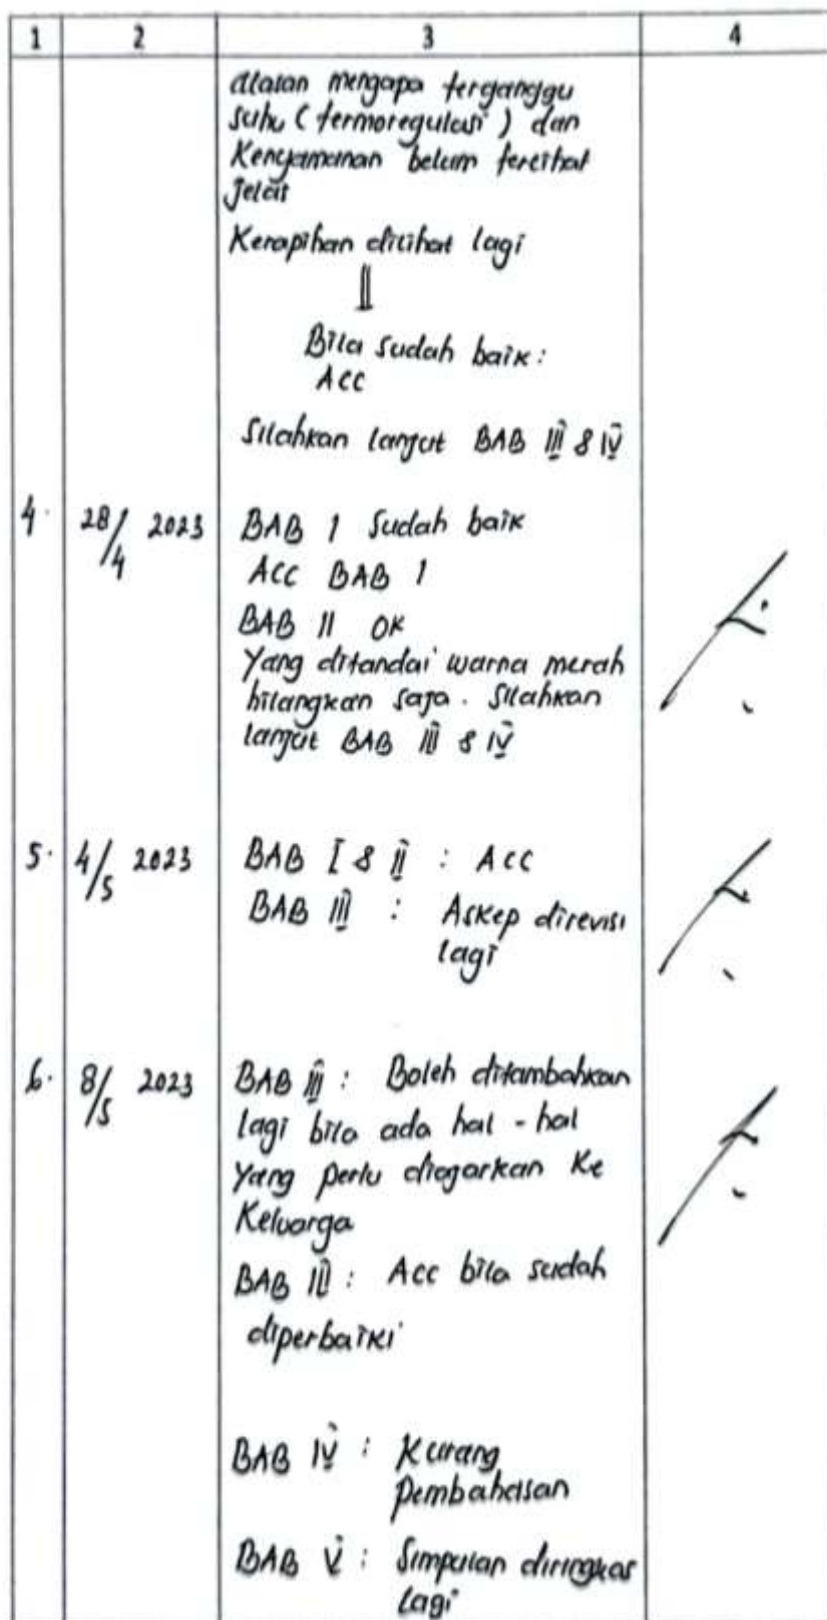 1 2 3 4
alasan mengapa terganggu
suhu (termoregulasi) dan
Kenyamanan belum terlihat
Jelas
Kerapihan dilihat lagi
Bila sudah baik:
ACC
Silahkan lanjut BAB III & IV
4. 28/4 2023 BAB I Sudah baik
ACC BAB I
BAB II OK
Yang ditandai warna merah
hilangkan saja. Silahkan
lanjut BAB III & IV
5. 4/5 2023 BAB I & II : ACC
BAB III : Askep direvisi
lagi
6. 8/5 2023 BAB III : Boleh ditambahkan
lagi bila ada hal - hal
Yang perlu diajarkan Ke
Keluarga
BAB III : Acc bila sudah
diperbaiki
BAB IV : Kurang
pembahasan
BAB V : Simpulan diringkas
lagi